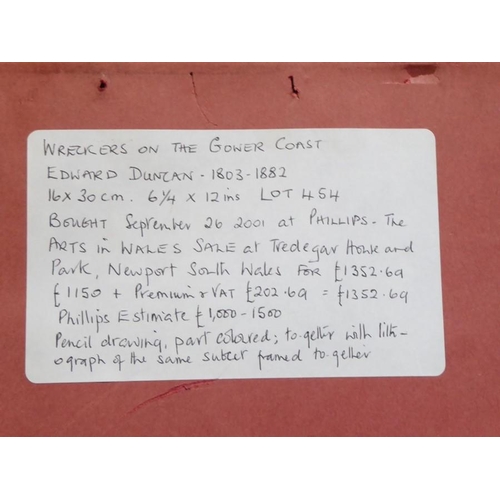 WRECKERS ON THE GOWER COAST
EDWARD DUNCAN - 1803-1882
16 x 30 cm. 6 1/4 x 12 ins LOT 454
BOUGHT September 26 2001 at PHILLIPS - The
ARTS in WALES SALE at Tredegar House and
Park, Newport South Wales FOR £1352.69
£1150 + Premium & VAT £202.69 = £1352.69
Phillips Estimate £1,000 - 1500
Pencil drawing, part coloured; together with lith-
ograph of the same subcet framed together